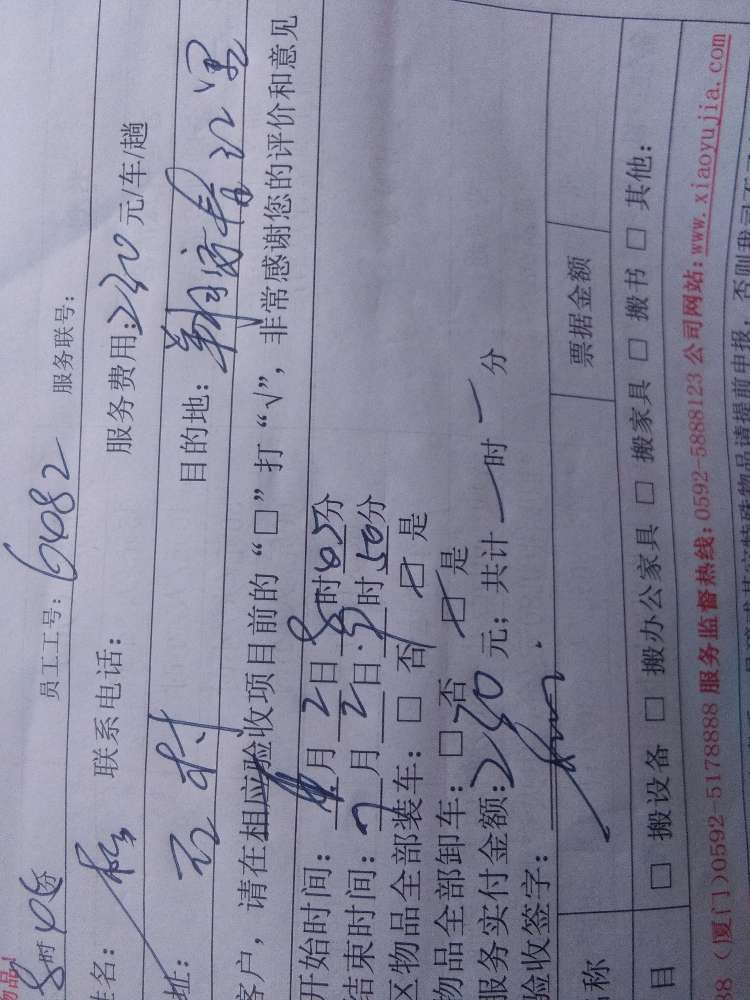 物品!
时 分 员工工号: 6082 服务联号:
姓名: 联系电话: 服务费用: 230 元/车/趟
址: 石村 目的地:
客户，请在相应验收项目前的“□”打“√”，非常感谢您的评价和意见
开始时间: 月 2 日 8 时 05 分
结束时间: 7 月 2 日 时 50 分
区物品全部装车: □ 否 ☑ 是
物品全部卸车: □ 否 ☑ 是
服务实付金额: 230 元; 共计 一 时 一 分
验收签字:
称 票据金额
目 □ 搬设备 □ 搬办公家具 □ 搬家具 □ 搬书 □ 其他:
88 (厦门)0592-5178888 服务监督热线: 0592-5888123 公司网站: www.xiaoyujia.com
特殊物品请提前申报，否则我司不